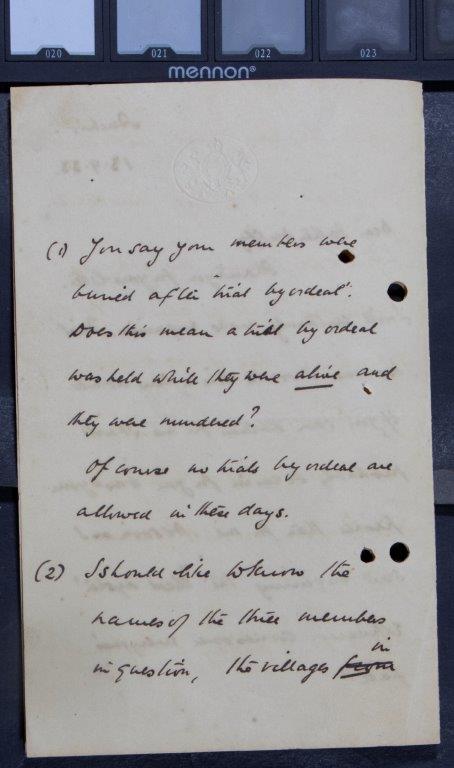 020 021 022 023
mennon®
(1) You say your members were
buried after "trial by ordeal".
Does this mean a trial by ordeal
was held while they were alive and
they were murdered?
Of course no trials by ordeal are
allowed in these days.
(2) I should like to know the
names of the three members
in
in question, the villages from